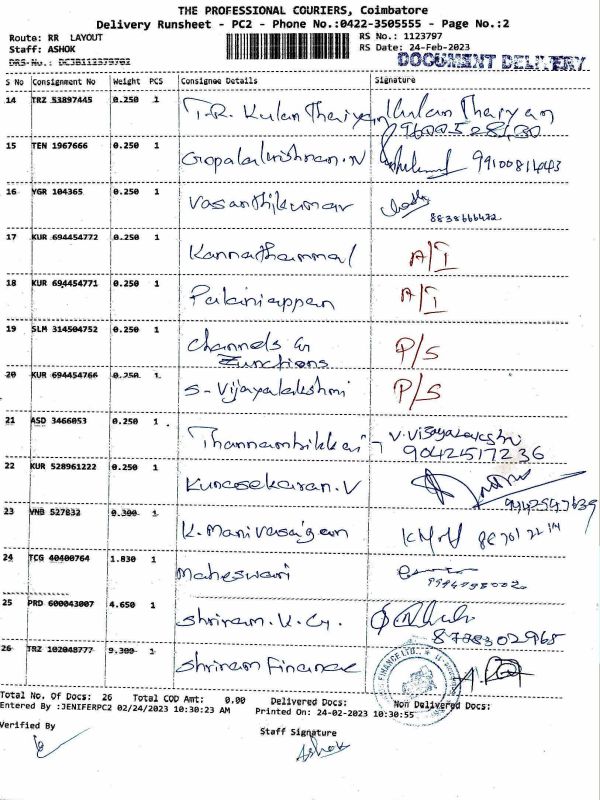 THE PROFESSIONAL COURIERS, Coimbatore
Delivery Runsheet - PC2 - Phone No.:0422-3505555 - Page No.:2
Route: RR LAYOUT RS No.: 1123797
Staff: ASHOK RS Date: 24-Feb-2023
DRS-No.: DC3B112379702
DOCUMENT DELIVERY
S No Consignment No Weight PCS Consignee Details Signature
14 TRZ 53897445 0.250 1 T.R. Kulanthaiyan Kulanthaiyan
15 TEN 1967666 0.250 1 Gopalakrishnan.N
16 YGR 104365 0.250 1 Vasanthikumar
8838666422
17 KUR 694454772 0.250 1 Kannathammal A/I
18 KUR 694454771 0.250 1 Palaniappan A/I
19 SLM 314504752 0.250 1 Channels &
Functions P/S
20 KUR 694454766 0.250 1 S-Vijayalakshmi P/S
21 ASD 3466053 0.250 1 V.Vijayalakshi
9042517236
22 KUR 528961222 0.250 1 Kunasekaran.V
9942547639
23 VNB 527832 0.300 1 K.Manivasagan
24 TCG 40400764 1.830 1 Maheswari
25 PRD 600043007 4.650 1 Shriram.K.G.
8778302965
26 TRZ 102048777 9.300 1 Shriram Finance
FINANCE LTD.
Total No. Of Docs: 26 Total COD Amt: 0.00 Delivered Docs: Non Delivered Docs:
Entered By :JENIFERPC2 02/24/2023 10:30:23 AM Printed On: 24-02-2023 10:30:55
Verified By Staff Signature
Ashok